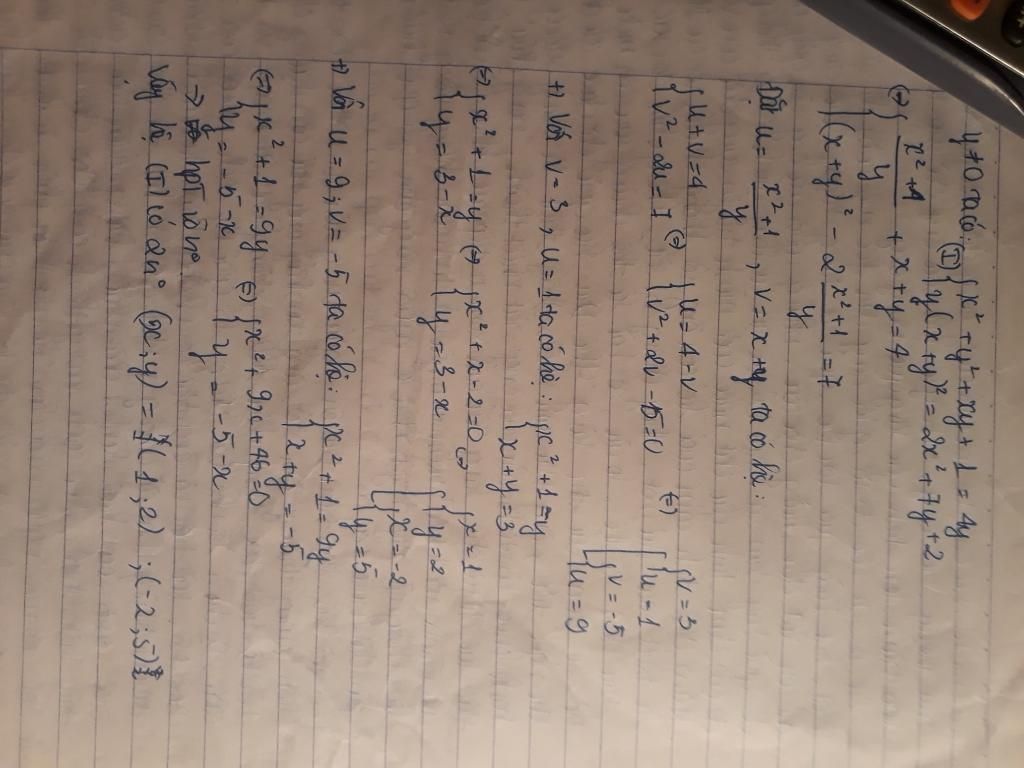 y ≠ 0 ta có: (I) { x² + y² + xy + 1 = 4y
{ y(x+y)² = 2x² + 7y + 2
(=) { (x²+1)/y + x + y = 4
{ (x+y)² - 2 (x²+1)/y = 7
Đặt u = (x²+1)/y , v = x+y ta có hệ:
{ u + v = 4 (=) { u = 4 - v (=) [ { v = 3
{ v² - 2u = 7 { v² + 2v - 15 = 0 { u = 1
{ v = -5
{ u = 9
+) Với v = 3, u = 1 ta có hệ: { x² + 1 = y
{ x + y = 3
(=) { x² + 1 = y (=) { x² + x - 2 = 0 (=) [ { x = 1
{ y = 3 - x { y = 3 - x { y = 2
{ x = -2
{ y = 5
+) Với u = 9, v = -5 ta có hệ: { x² + 1 = 9y
{ x + y = -5
(=) { x² + 1 = 9y (=) { x² + 9x + 46 = 0
{ y = -5 - x { y = -5 - x
→ hpt vô n°
Vậy hệ (I) có 2 n° (x;y) = {(1;2) ; (-2;5)}